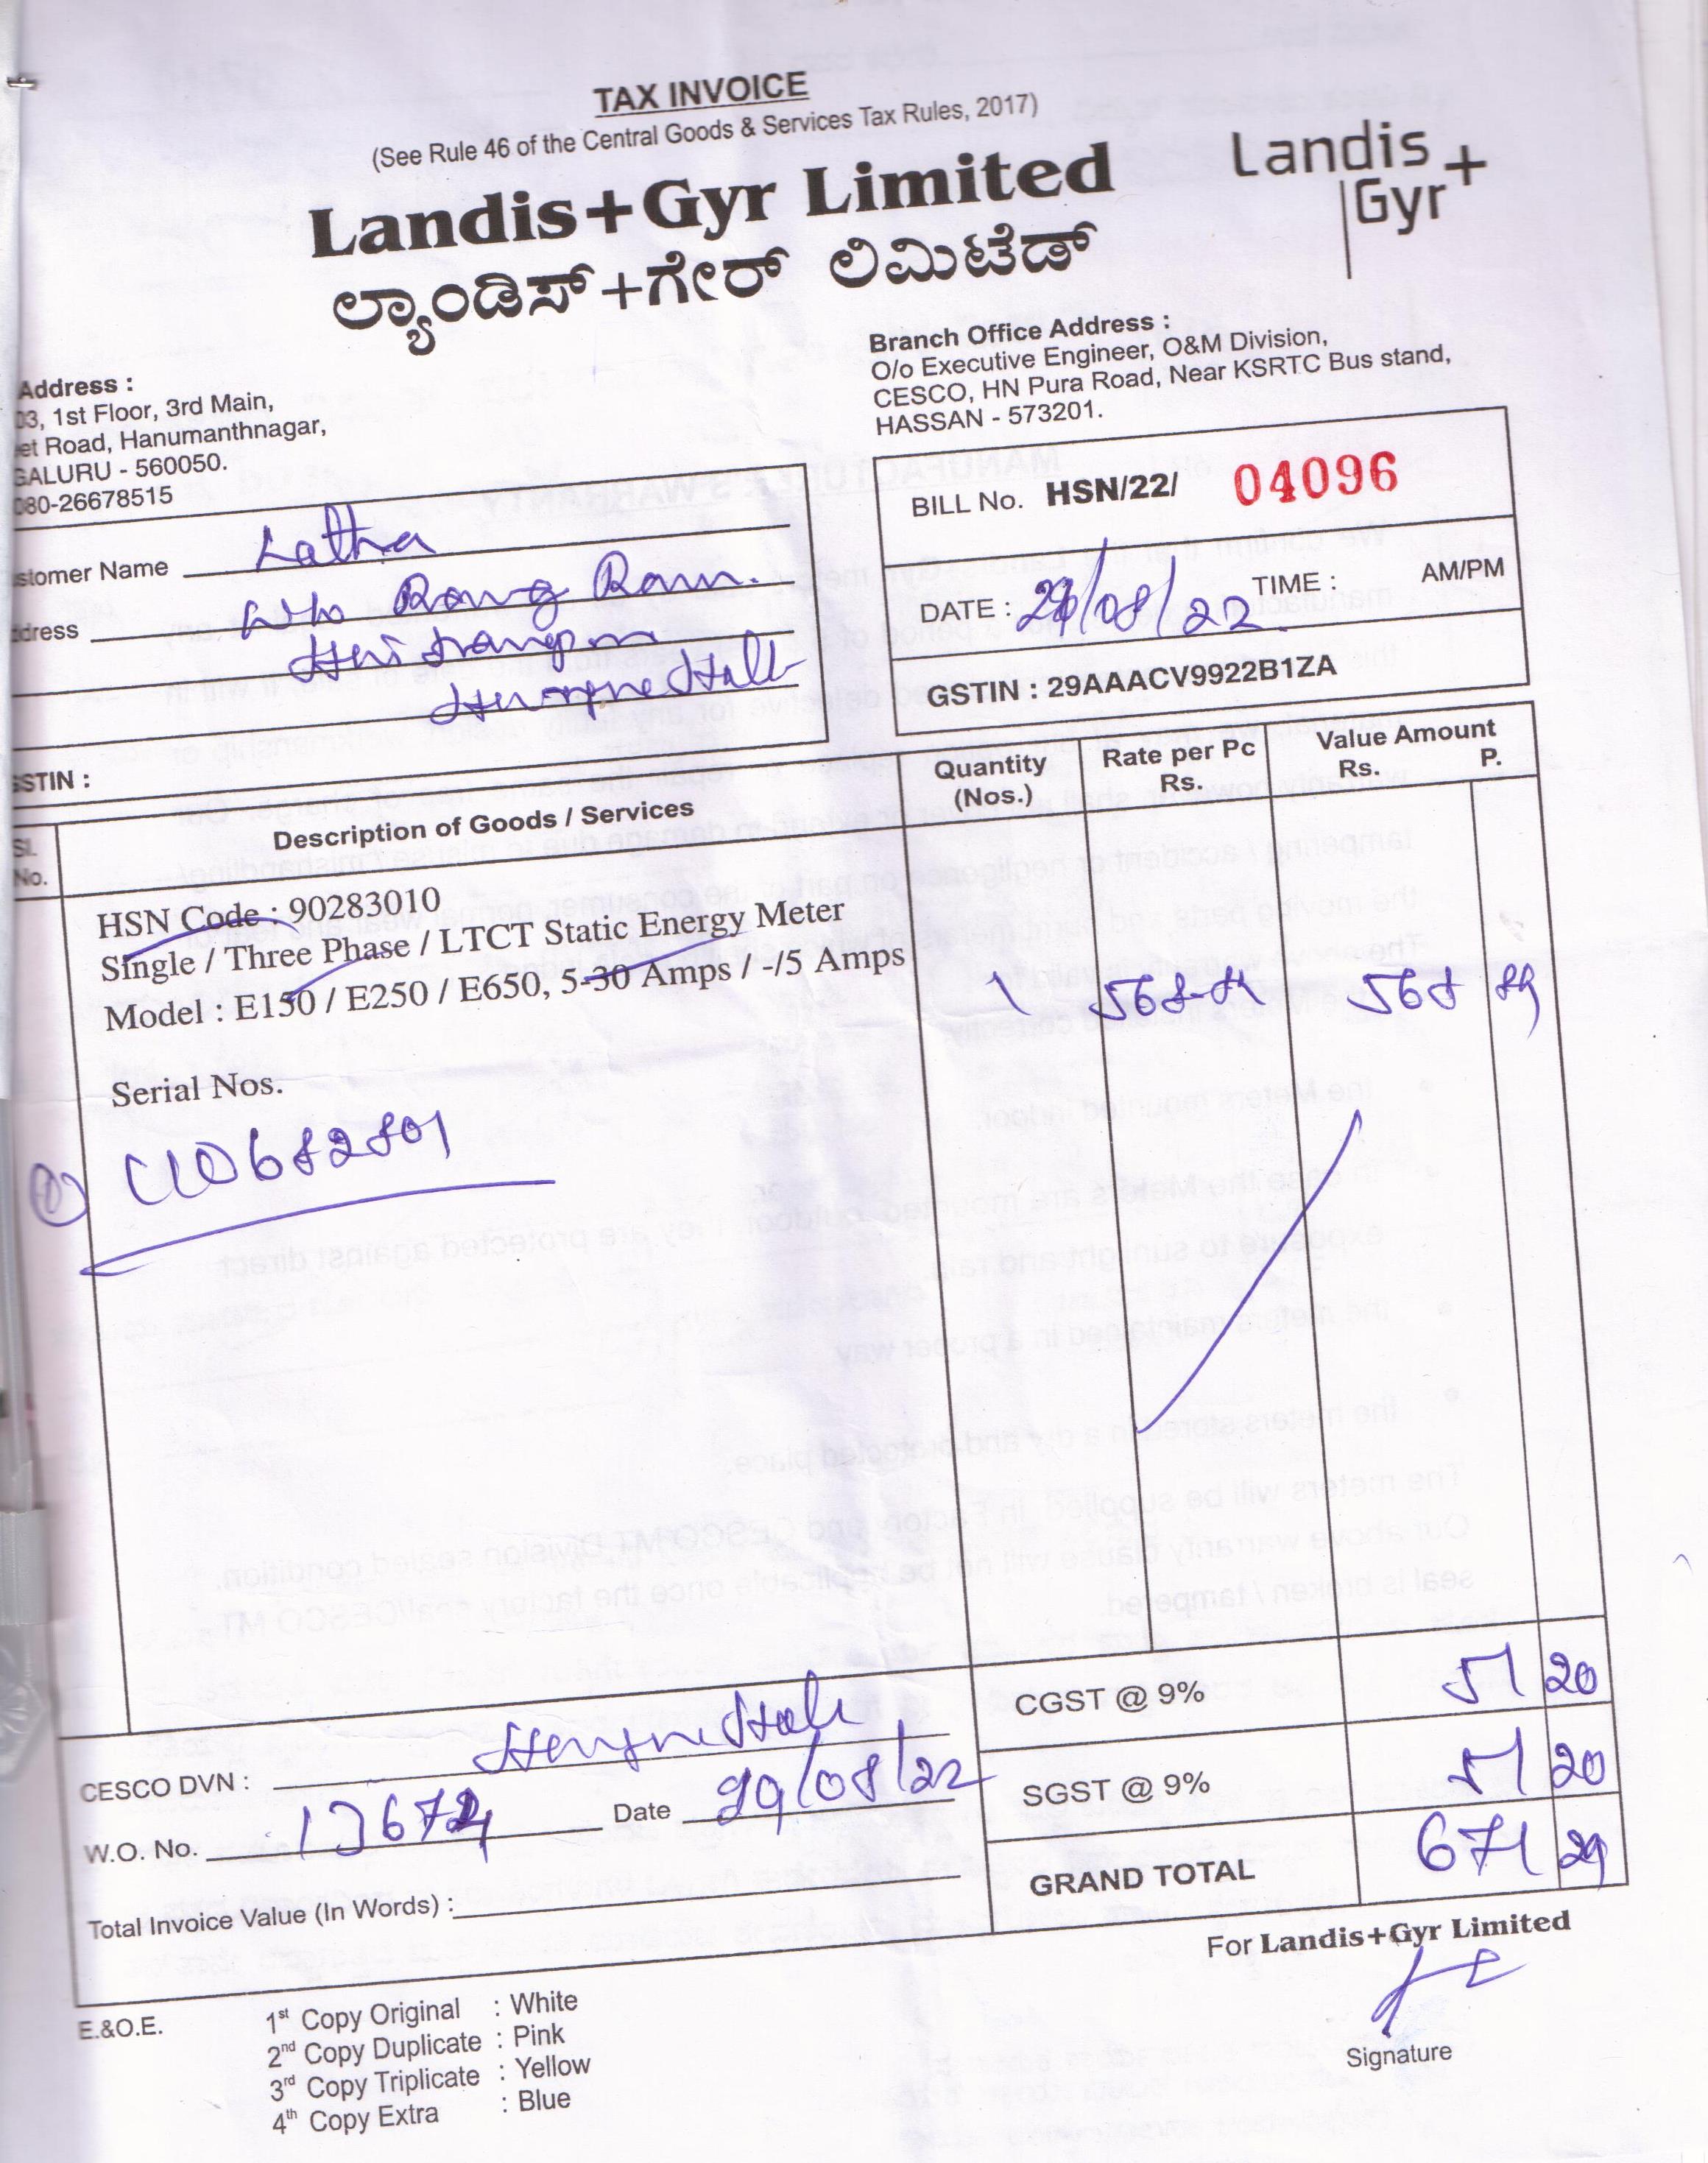 TAX INVOICE
(See Rule 46 of the Central Goods & Services Tax Rules, 2017)
Landis+Gyr Limited
ಲ್ಯಾಂಡಿಸ್+ಗೇರ್ ಲಿಮಿಟೆಡ್
Landis
Gyr+
Address :
03, 1st Floor, 3rd Main,
et Road, Hanumanthnagar,
GALURU - 560050.
080-26678515
Branch Office Address :
O/o Executive Engineer, O&M Division,
CESCO, HN Pura Road, Near KSRTC Bus stand,
HASSAN - 573201.
stomer Name Latha
dress W/o Rang Ram.
BILL No. HSN/22/ 04096
DATE : 29/08/22 TIME : AM/PM
GSTIN : 29AAACV9922B1ZA
GSTIN :
Sl. No. Description of Goods / Services Quantity (Nos.) Rate per Pc Rs. Value Amount Rs. P.
HSN Code : 90283010
Single / Three Phase / LTCT Static Energy Meter
Model : E150 / E250 / E650, 5-30 Amps / -/5 Amps 1 568-89 568 89
Serial Nos.
CGST @ 9% 51 20
SGST @ 9% 51 20
GRAND TOTAL 671 29
CESCO DVN :
W.O. No. Date 29/08/22
Total Invoice Value (In Words) :
For Landis+Gyr Limited
Signature
E.&O.E.
1st Copy Original : White
2nd Copy Duplicate : Pink
3rd Copy Triplicate : Yellow
4th Copy Extra : Blue